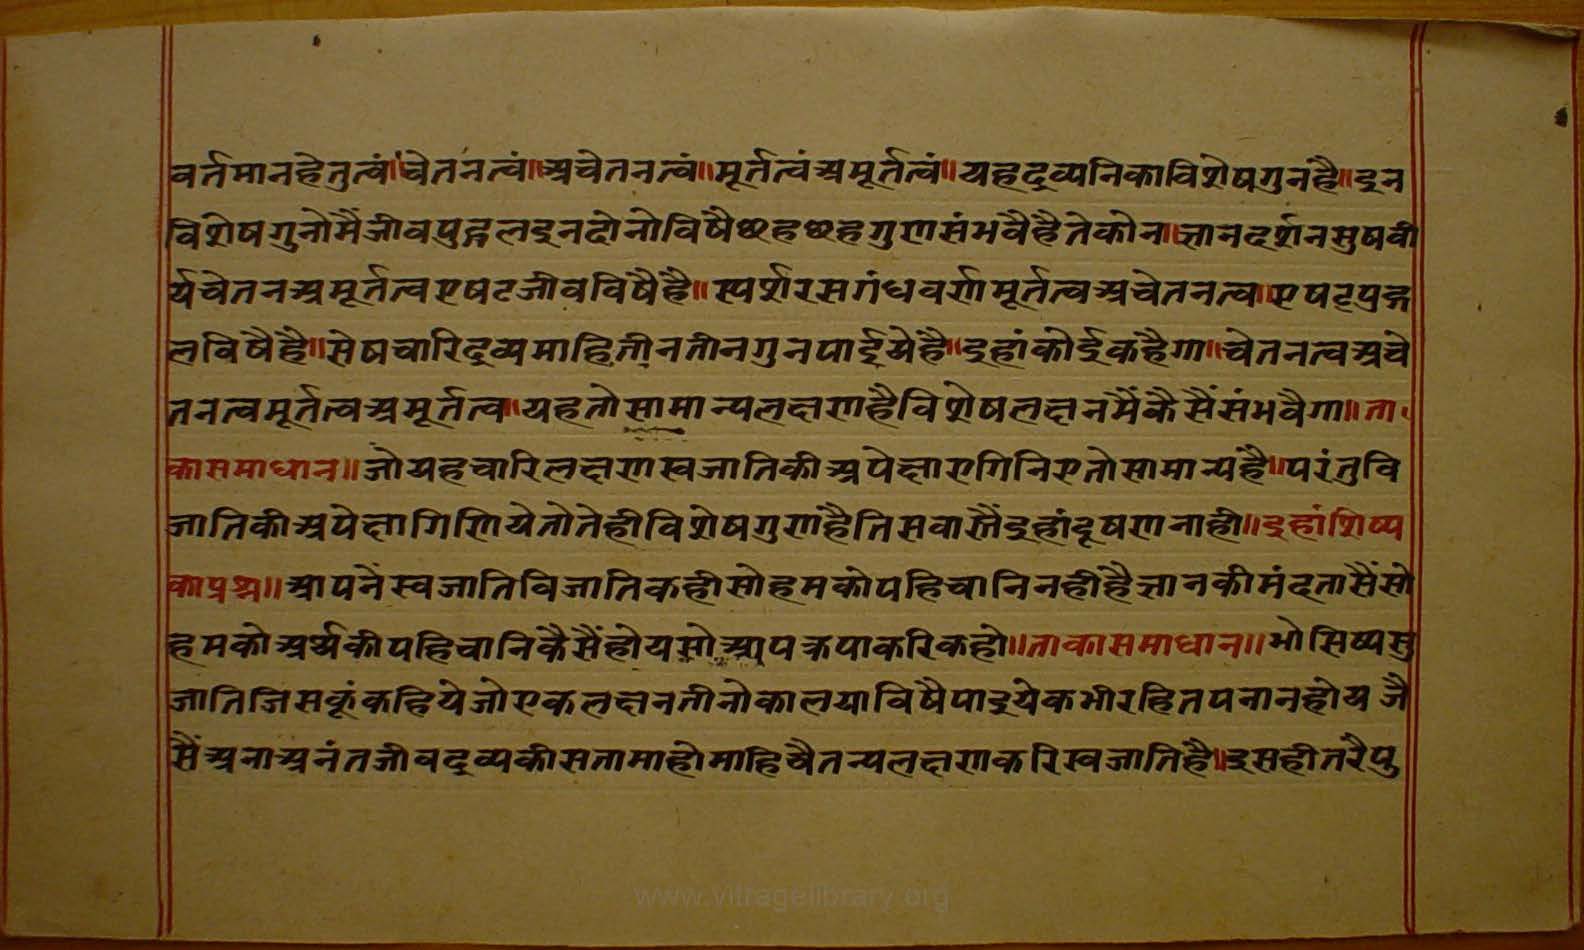 वर्तमानहेतुत्वं॥चेतनत्वं॥अचेतनत्वं॥मूर्तत्वंअमूर्तत्वं॥यहद्रव्यनिकाविशेषगुनहै॥इन
विशेषगुनोमैंजीवपुद्गलइनदोनोविषैछहछहगुणसंभवैहैतेकोन॥ज्ञानदर्शनसुषवी
र्यचेतनअमूर्तत्वएषटजीवविषैंहै॥स्पर्शरसगंधवर्णमूर्तत्वअचेतनत्व॥एषटपुद्ग
लविषैहै॥सेषचारिद्रव्यमाहितीनतीनगुनपाईयेहै॥इहांकोईकहैगा॥चेतनत्वअचे
तनत्वमूर्तत्वअमूर्तत्व॥यहतोसामान्यलक्षणहैविशेषलक्षनमैंकैसैंसंभवैगा॥ता
कासमाधान॥जोयहचारिलक्षणस्वजातिकीअपेक्षाएगिनिएतोसामान्यहै॥परंतुवि
जातिकीअपेक्षागिणियेतोतेहीविशेषगुणहैतिसवास्तैंइहांदूषणनाही॥इहांशिष्य
काप्रश्न॥आपनेंस्वजातिविजातिकहीसोहमकोपहिचानिनहींहैज्ञानकीमंदतासैंसो
हमकोअर्थकीपहिचानिकैसैंहोयसोआपक्रपाकरिकहो॥ताकासमाधान॥भोसिष्यसु
जातिजिसकूंकहियेजोएकलक्षनतीनोकालयाविषैपाइयेकभीरहितपनानहोयजै
सैंअनाअनंतजीवद्रव्यकीसतामाहोमाहिचैतन्यलक्षणकरिस्वजातिहै॥इसहीतरैपु
www.vitragelibrary.org